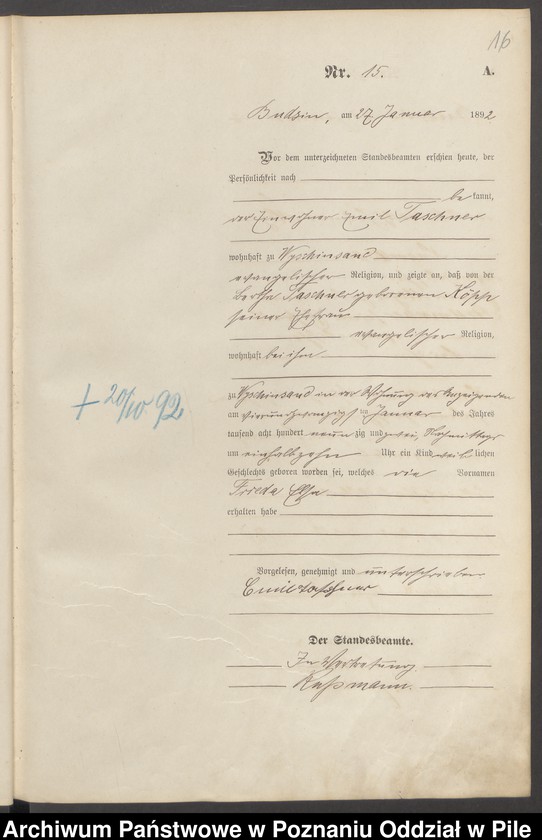 16
Nr. 15. A.
Budsin, am 27 Januar 1892
Vor dem unterzeichneten Standesbeamten erschien heute, der
Persönlichkeit nach
be kannt,
der Einwohner Emil Taschner
wohnhaft zu Wyschinsand
evangelischer Religion, und zeigte an, daß von der
Bertha Taschner geborenen Köpp
seiner Ehefrau
evangelischer Religion,
wohnhaft bei ihm
zu Wyschinsand in der Wohnung des Anzeigenden
am vierundzwanzigsten Januar des Jahres
tausend acht hundert neunzig und zwei, Nachmittags
um Uhr ein Kind weiblichen
Geschlechts geboren worden sei, welches die Vornamen
Frieda Elsa
erhalten habe
+ 20/10 92
Vorgelesen, genehmigt und unterschrieben
Emil Taschner
Der Standesbeamte.
In Vertretung
Archiwum Państwowe w Poznaniu Oddział w Pile